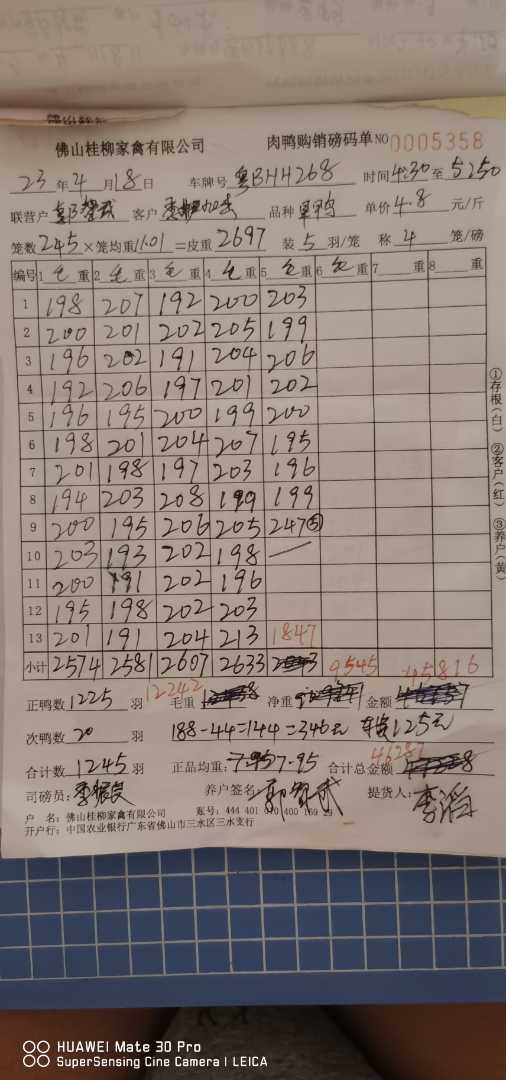 佛山桂柳家禽有限公司 肉鸭购销磅码单 NO 0005358
23年4月18日 车牌号 粤BHH268 时间 4:30至5:50
联营户 客户 品种 单价 4.8 元/斤
笼数 245 ×笼均重 11.01 =皮重 2697 装 5 羽/笼 称 4 笼/磅
编号 1 毛 重 2 毛 重 3 毛 重 4 毛 重 5 毛 重 6 毛 重 7 重 8 重
1 198 207 192 200 203
2 200 201 202 205 199
3 196 202 191 204 206
4 192 206 197 201 202
5 196 195 200 199 200
6 198 201 204 207 195
7 201 198 197 203 196
8 194 203 208 199 199
9 200 195 206 205 247⑤
10 203 193 202 198 —
11 200 191 202 196
12 195 198 202 203
13 201 191 204 213 1847
小计 2574 2581 2607 2633 9545 45816
正鸭数 1225 羽 12242 毛重 净重 金额
次鸭数 20 羽 188-44=144=346元 车费125元
合计数 1245 羽 正品均重: 7.95 合计总金额 46287
司磅员: 养户签名: 提货人: 李滔
户 名: 佛山桂柳家禽有限公司 账号: 444 401 010 400 169 29
开户行: 中国农业银行广东省佛山市三水区三水支行
①存根(白) ②客户(红) ③养户(黄)
HUAWEI Mate 30 Pro
SuperSensing Cine Camera | LEICA